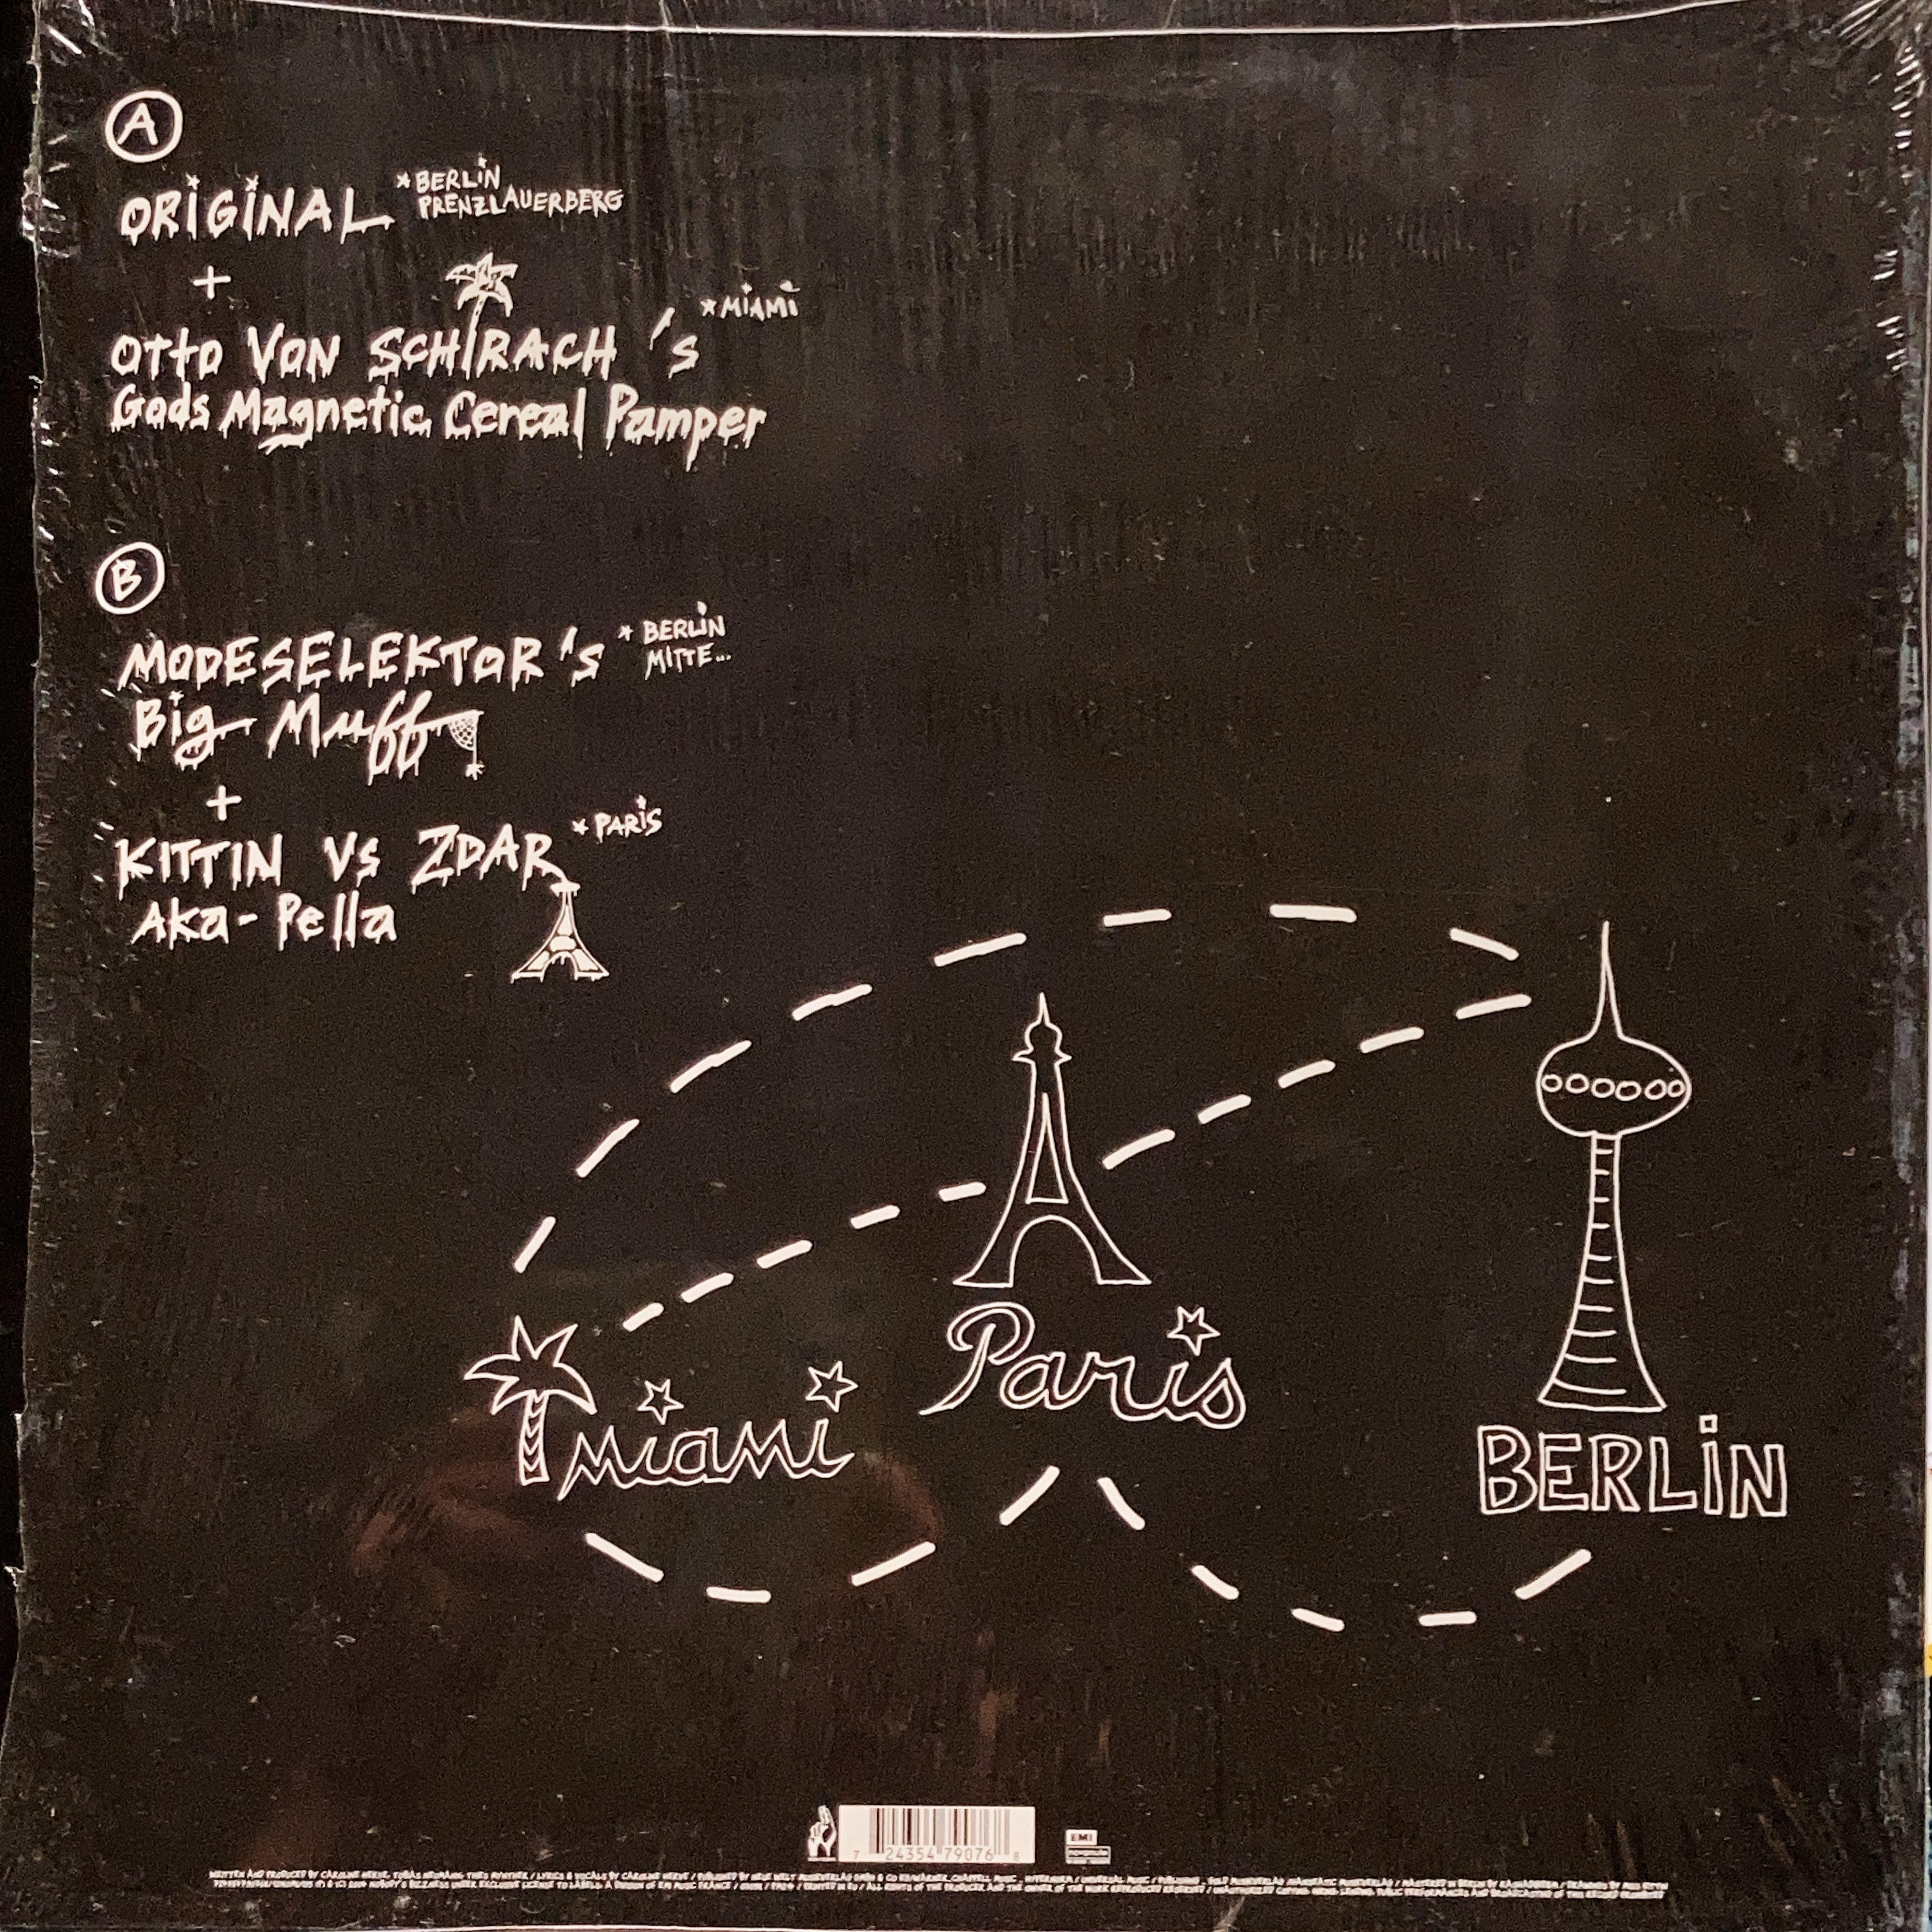 A
ORiGiNAL *BERLiN
PRENZLAUERBERG
+
OTTO VON SCHIRACH 's *MiAMi
Gods Magnetic Cereal Pamper
B
MODESELEKTOR 's * BERLiN
MITTE...
Big Muff
+
KITTIN VS ZDAR *PARiS
AKa-Pella
Miami
Paris
BERLiN
7 24354 79076 8
EMI